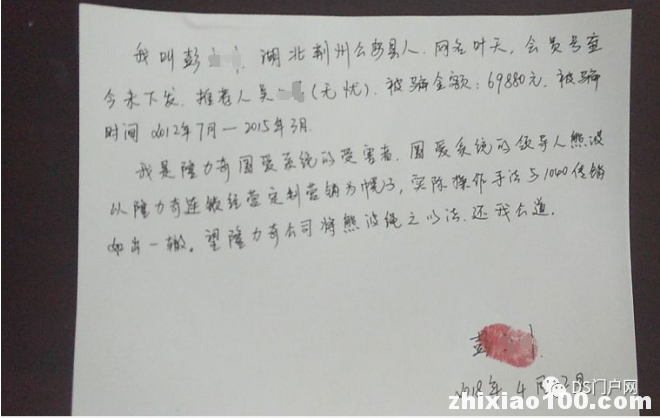 我叫彭 湖北荆州公安县人.网名叶天,会员号至
今未下发.推荐人吴 (无忧).被骗金额:69880元.被骗
时间 2012年7月—2015年3月.
我是隆力奇圆爱系统的受害者.圆爱系统的领导人熊波
以隆力奇连锁经营定制营销为幌子,实际操作手法与1040传销
如出一辙。望隆力奇公司将熊波绳之以法.还我公道.
彭
2018年4月 月
DS门户网
zhixiao100.com